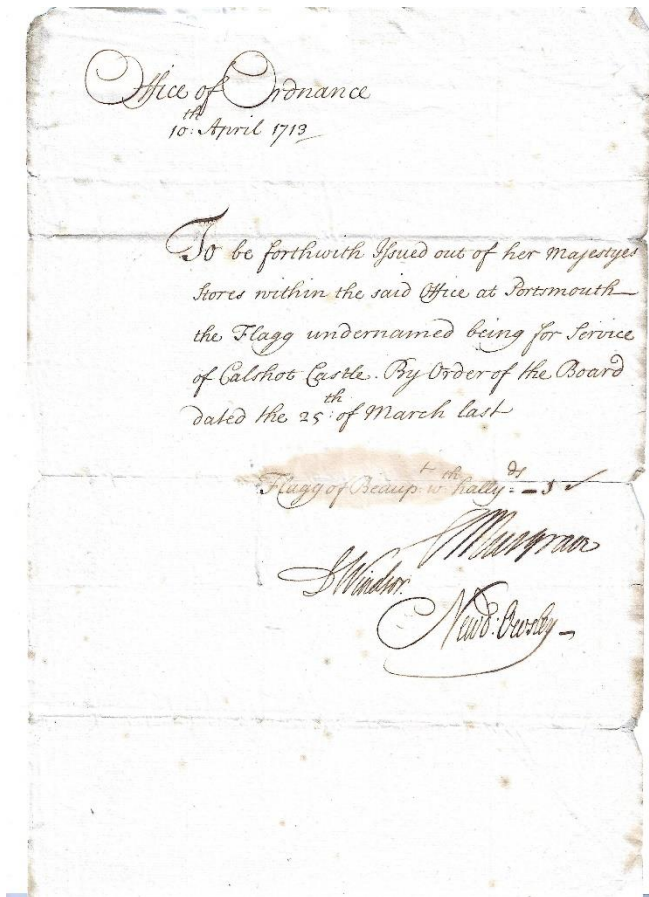 Office of Ordnance
10:th April 1713
To be forthwith Issued out of her Majestyes
Stores within the said Office at Portsmouth
the Flagg undernamed being for Service
of Calshot Castle. By Order of the Board
dated the 25:th of March last
Flagg of Beaup:t wth hally:ds - 1
C Musgrave
D Windsor.
Newd: Owsley